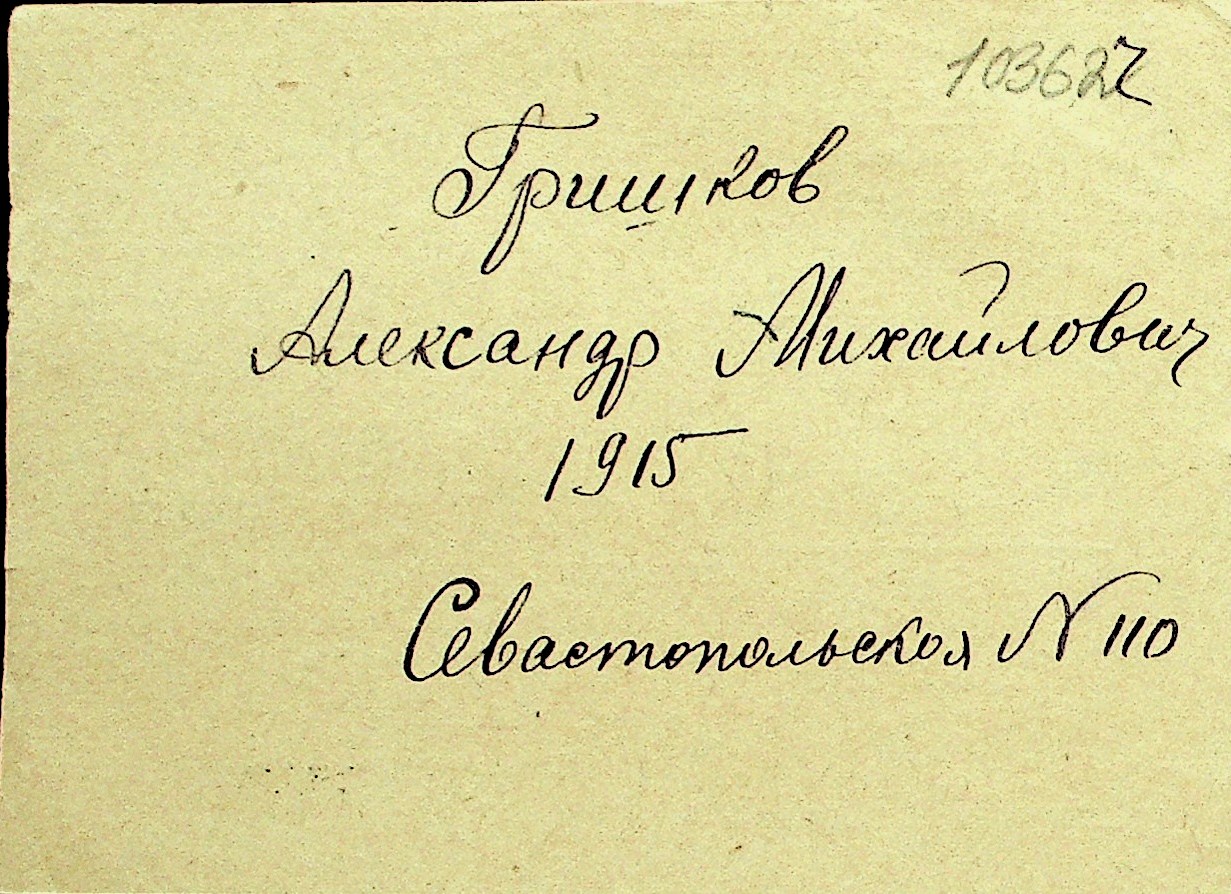 Гришков
Александр Михайлович
1915
Севастопольская N 110